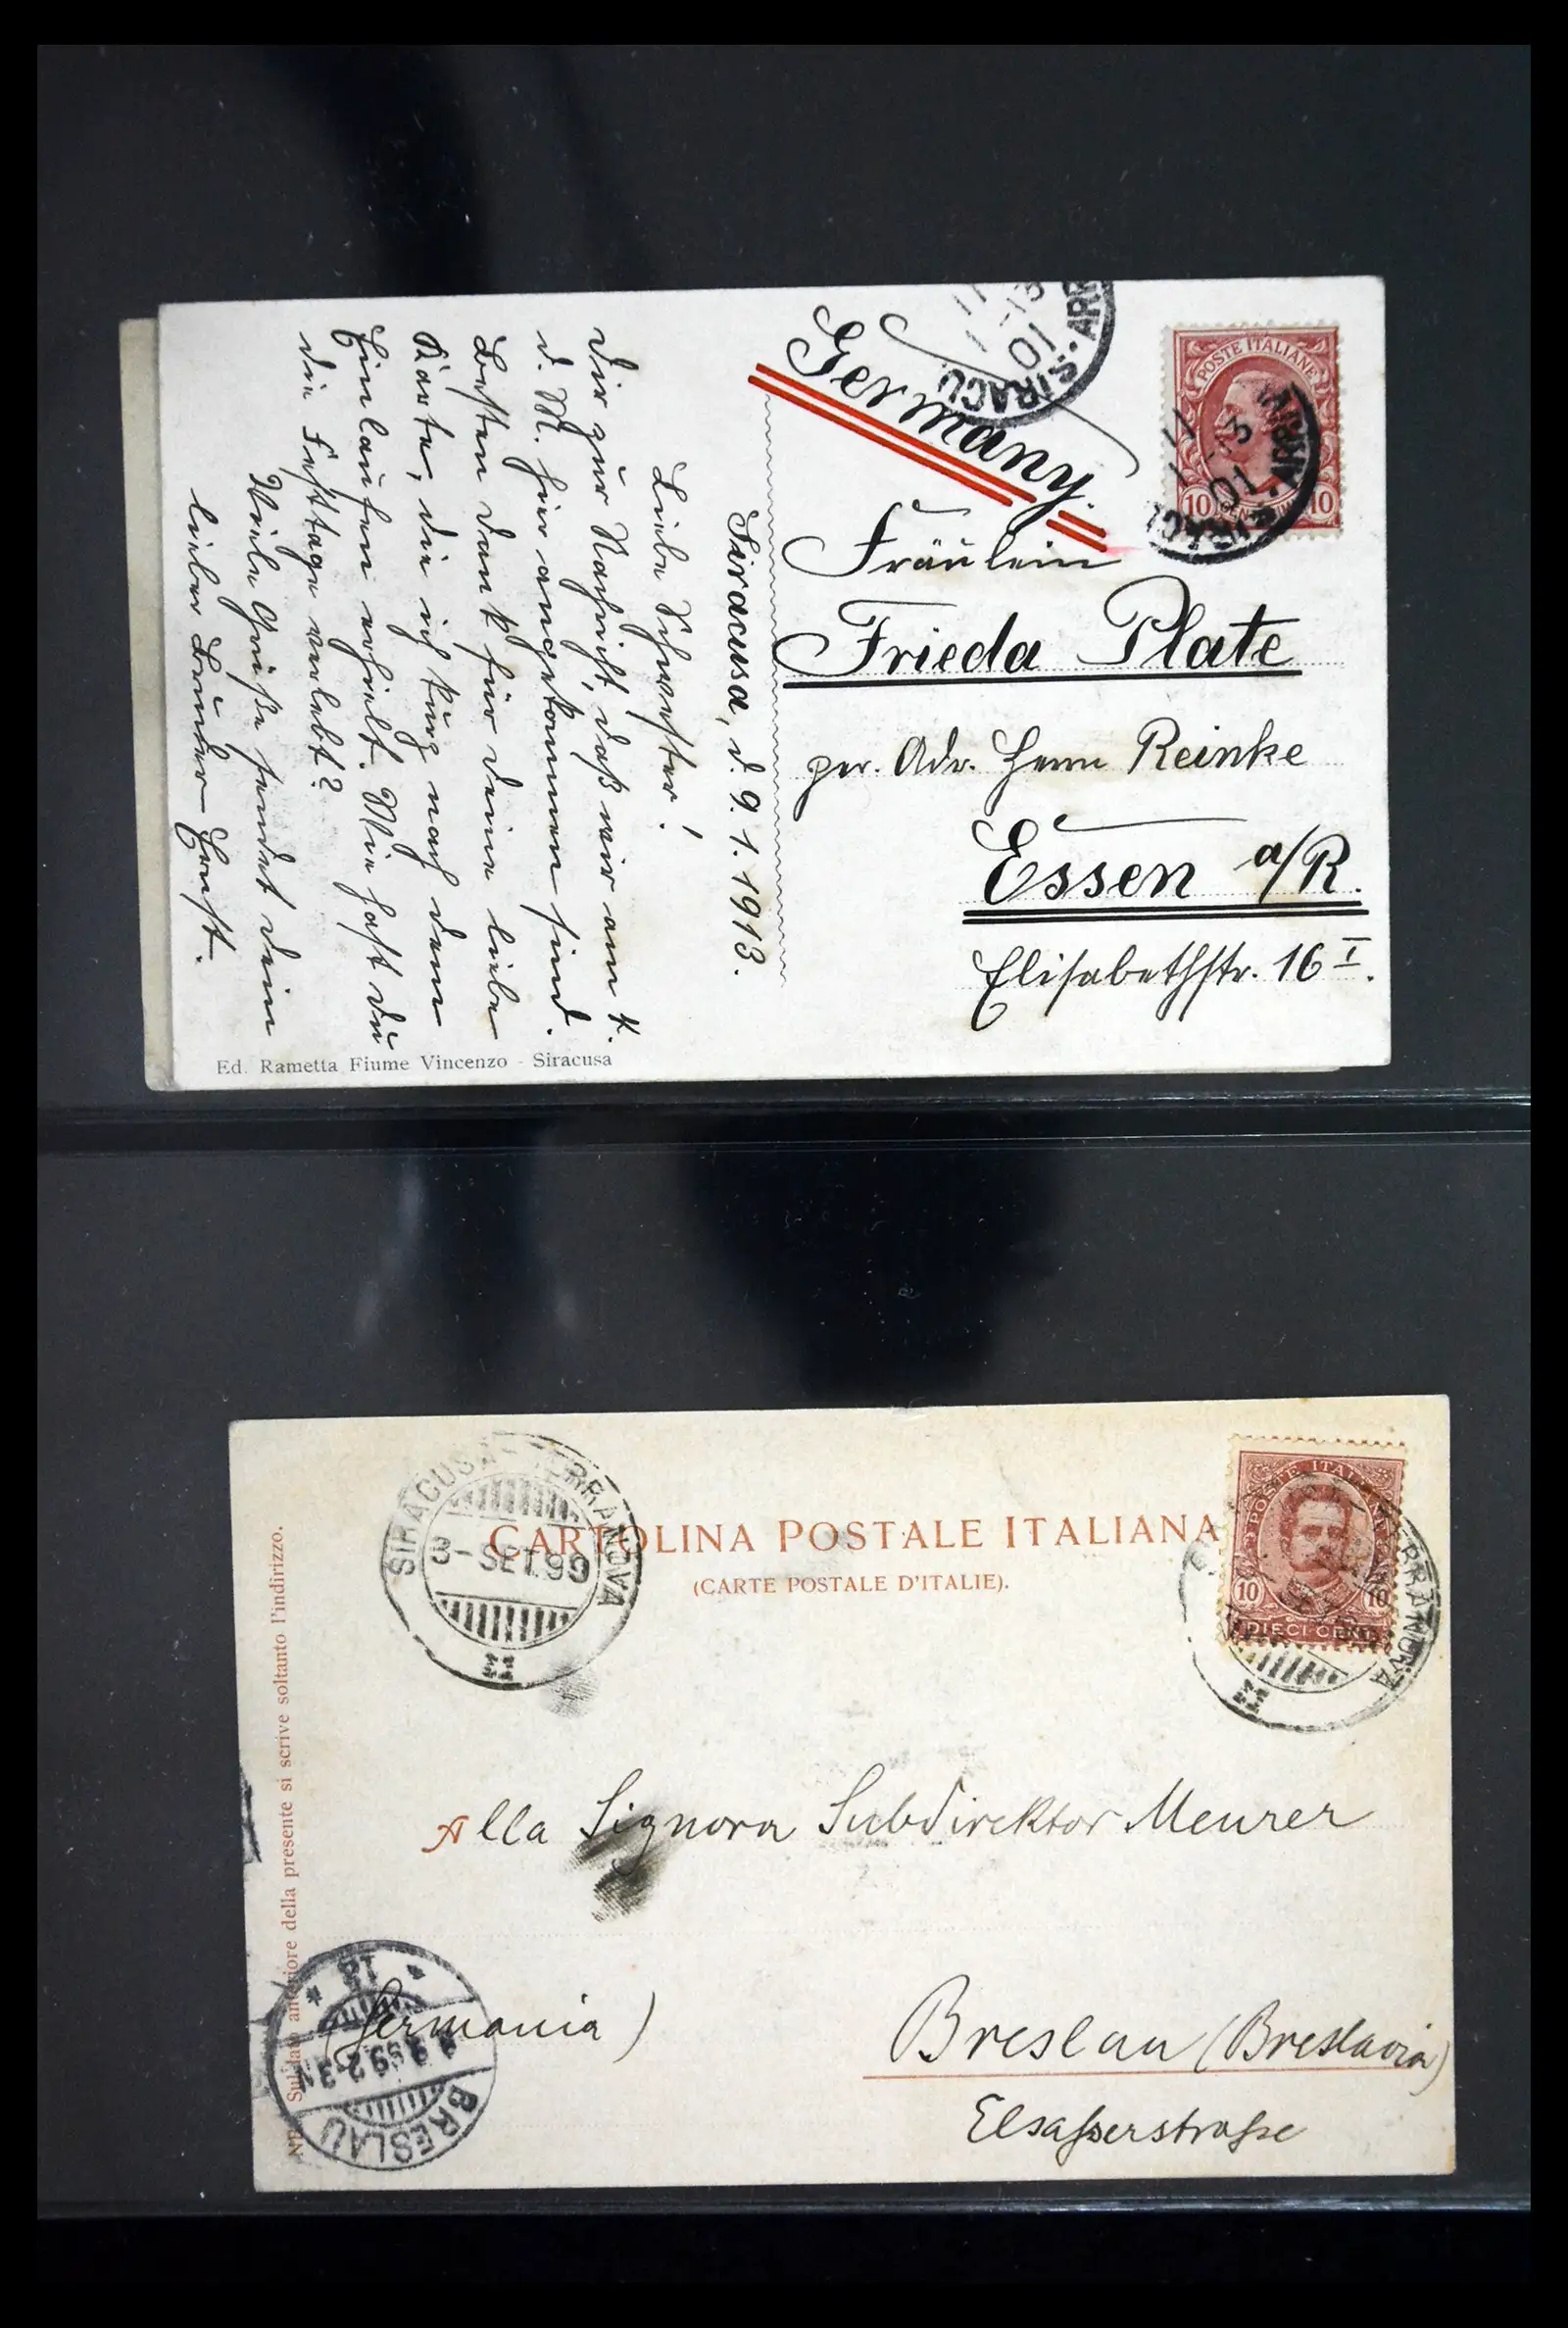 Germany.
Fräulein
Frieda Plate
per. Adr. Herrn Reinke
Essen a/R.
Elisabethstr. 16 I.
POSTE ITALIANE
10 10
SIRACUSA
Siracusa, d. 9. 1. 1913.
Liebe Schwester!
Dir zur Nachricht, daß wir am 4.
d. M. hier angekommen sind.
Besten Dank für deine liebe
Karte, die ich kurz nach dem
Einlaufen erhielt. Wie hast du
die Festtage verlebt?
Viele Grüße sendet dein
lieber Bruder Ernst.
Ed. Rametta Fiume Vincenzo - Siracusa
SIRACUSA TERRANOVA
3 - SET. 99
CARTOLINA POSTALE ITALIANA
(CARTE POSTALE D'ITALIE).
POSTE ITALIANE
10 10
DIECI CENT
RRANOVA
NB. Sul lato anteriore della presente si scrive soltanto l'indirizzo.
Alla Signora Subdirektor Meurer
(Germania)
Breslau (Breslavia)
Elsasserstraße
BRESLAU